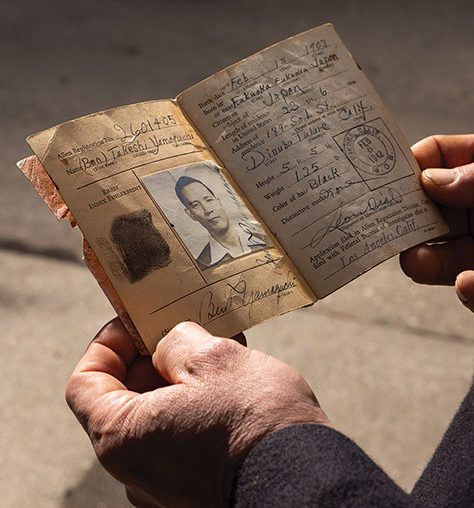 Alien Registration No. 2601405
Name (Ben) Takeshi Yamaguchi
RIGHT
INDEX FINGERPRINT
Ben T. Yamaguchi
Birth date Feb 15 1903
Born in Fukuoka Fukuoka Japan
Citizen of Japan
Length of residence in United States 23 6
Address of residence 189 So.
Dinuba Tulare Calif.
Height 5 5
Weight 125
Color of hair Black
Distinctive marks
Application filed in Alien Registration Division. Copy
filed with Federal Bureau of Investigation office at
Los Angeles Calif.